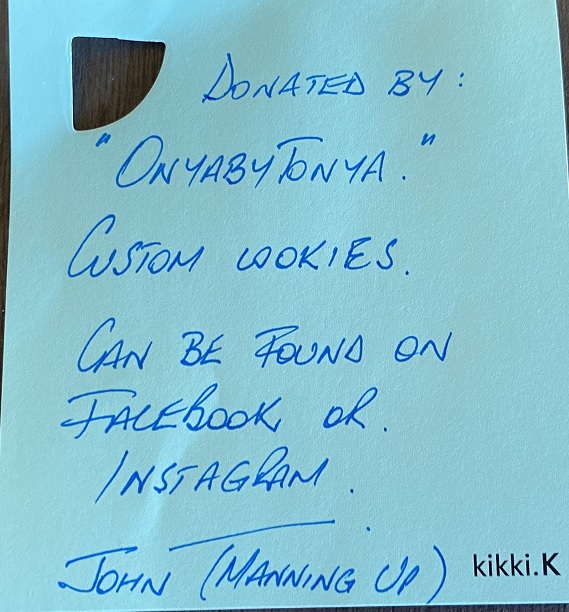 DONATED BY:
"ONYABYTONYA."
CUSTOM COOKIES.
CAN BE FOUND ON
FACEBOOK OR.
INSTAGRAM.
JOHN (MANNING UP)
kikki.K